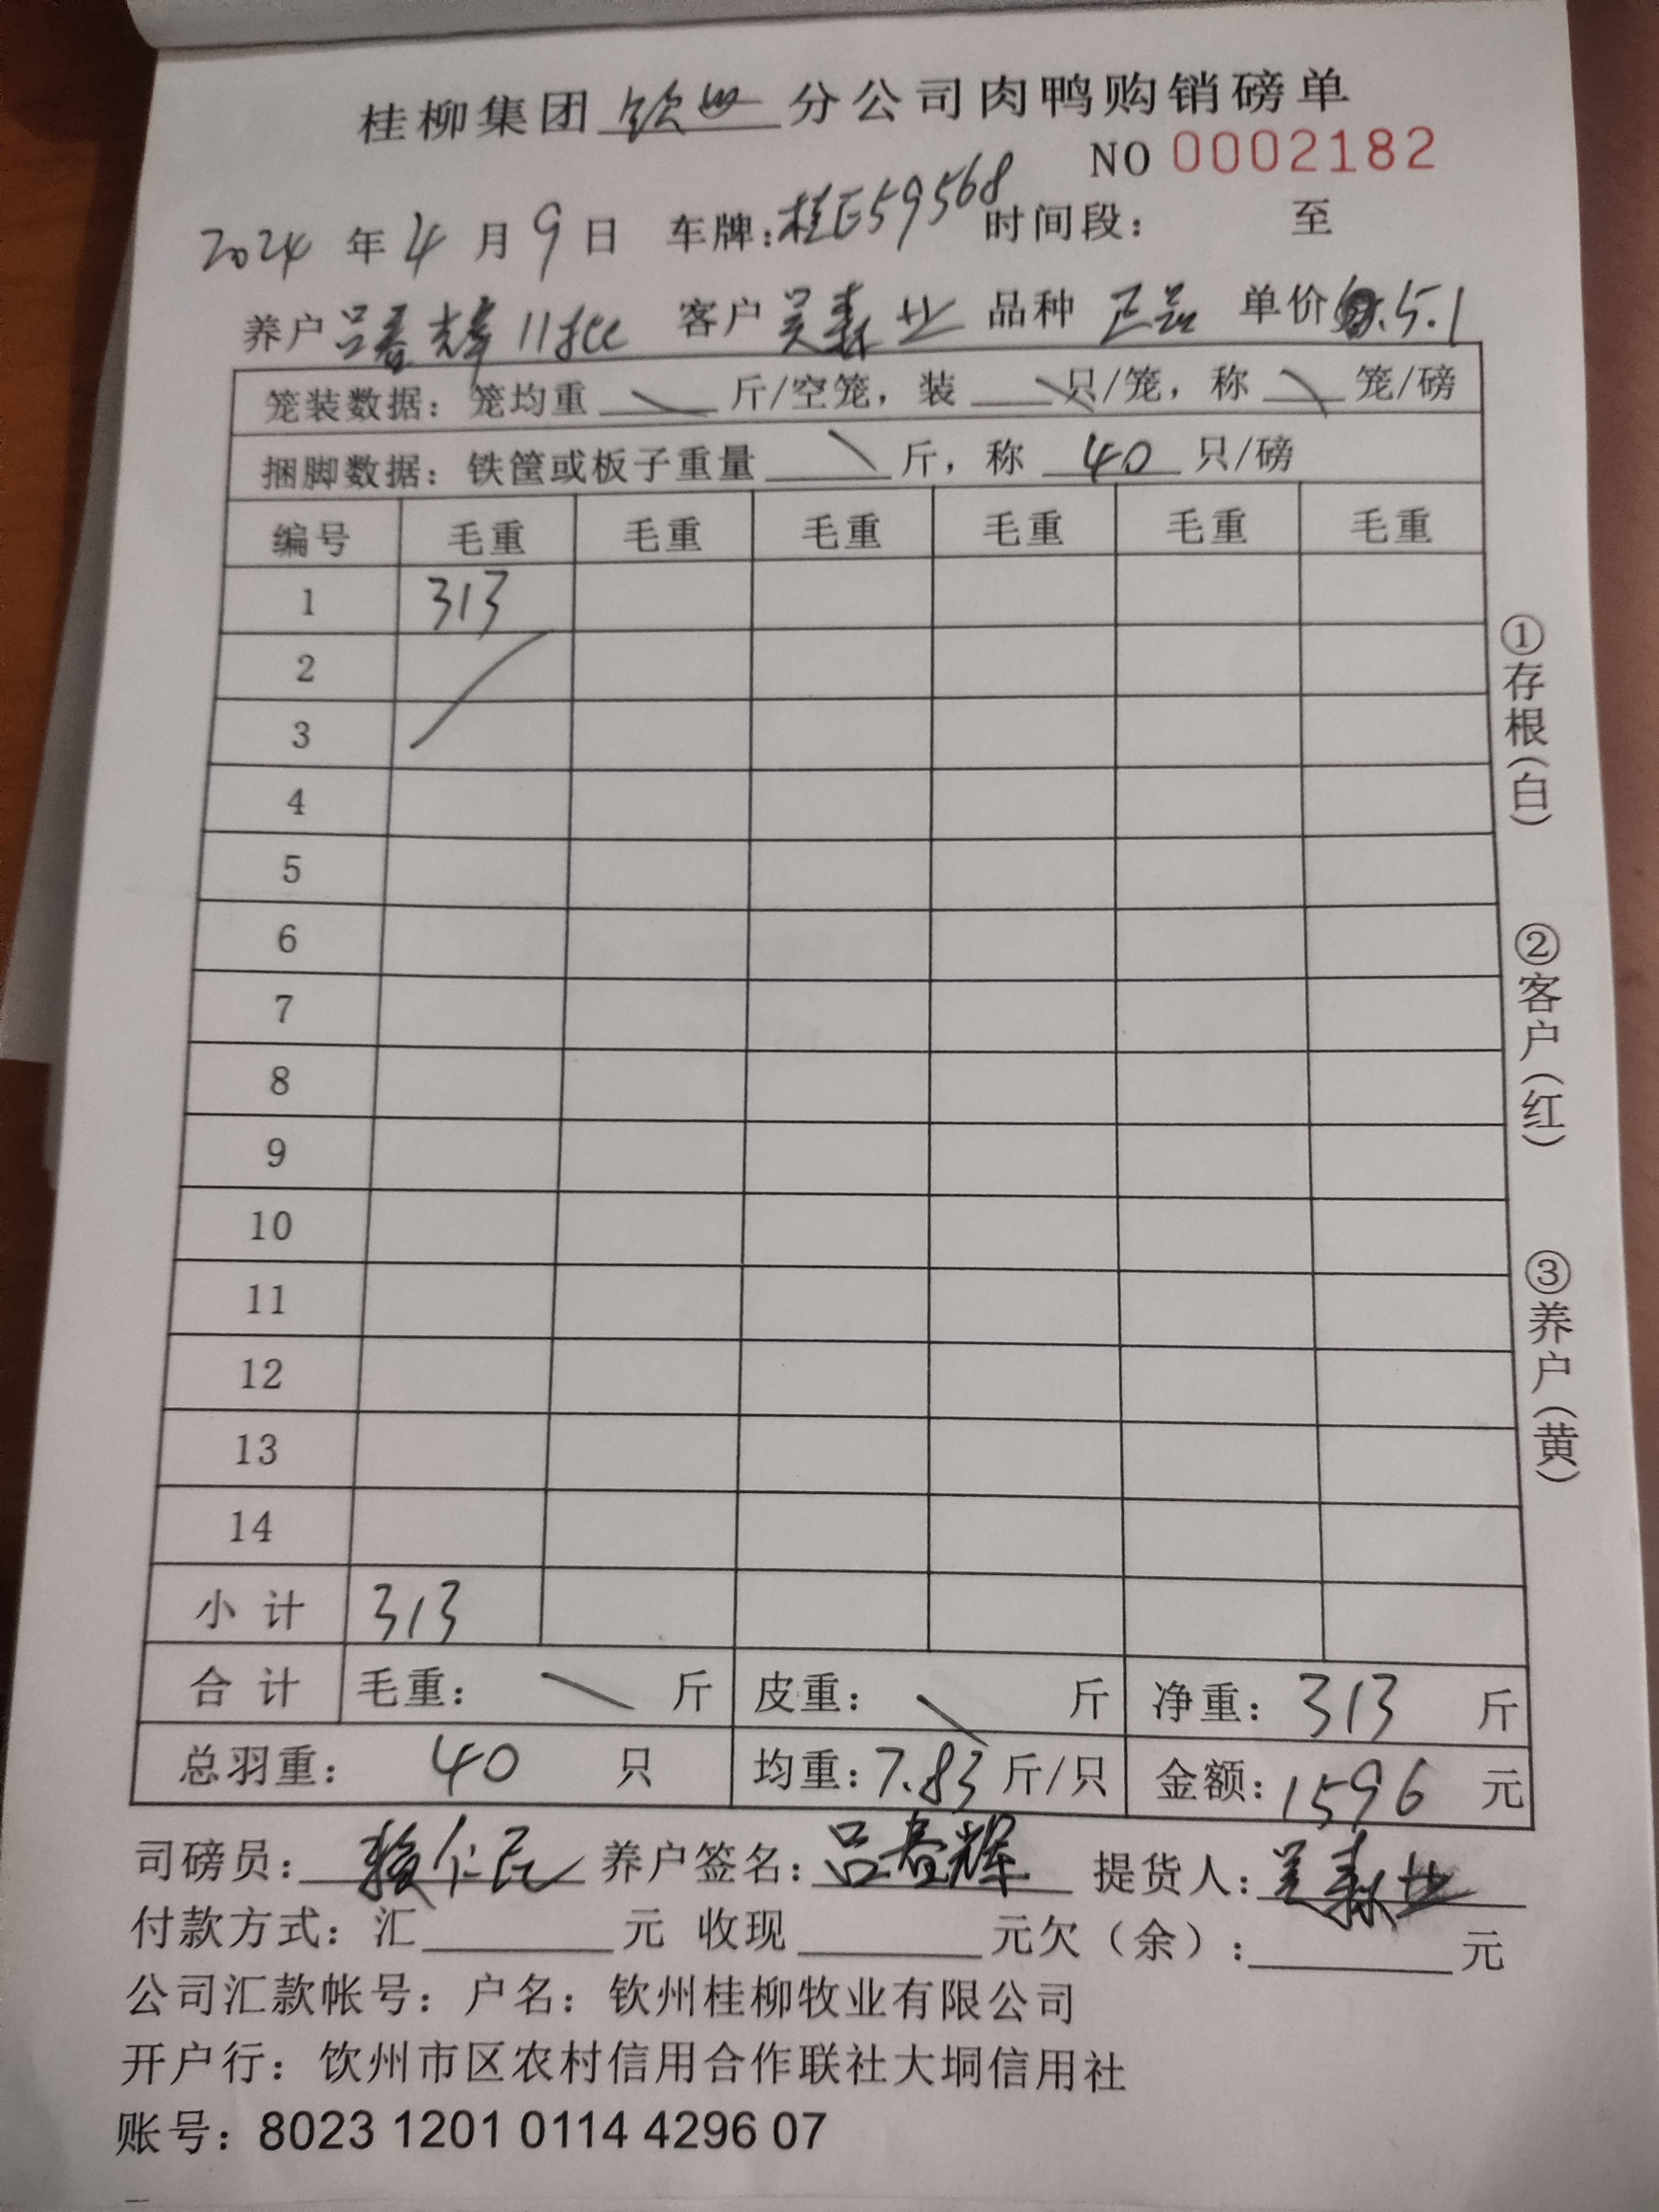 桂柳集团 钦州 分公司肉鸭购销磅单
NO 0002182
2024 年 4 月 9 日 车牌:桂E59568 时间段: 至
养户 吕春辉 客户 吴森业 品种 正品 单价 5.1
笼装数据: 笼均重 斤/空笼, 装 只/笼, 称 笼/磅
捆脚数据: 铁筐或板子重量 斤, 称 40 只/磅
编号 毛重 毛重 毛重 毛重 毛重 毛重
1 313
2
3
4
5
6
7
8
9
10
11
12
13
14
小计 313
合计 毛重: 斤 皮重: 斤 净重: 313 斤
总羽重: 40 只 均重: 7.83 斤/只 金额: 1596 元
司磅员: 仁民 养户签名: 吕春辉 提货人: 吴森业
付款方式: 汇 元 收现 元欠(余): 元
公司汇款帐号: 户名: 钦州桂柳牧业有限公司
开户行: 饮州市区农村信用合作联社大垌信用社
账号: 8023 1201 0114 4296 07
①存根(白)
②客户(红)
③养户(黄)